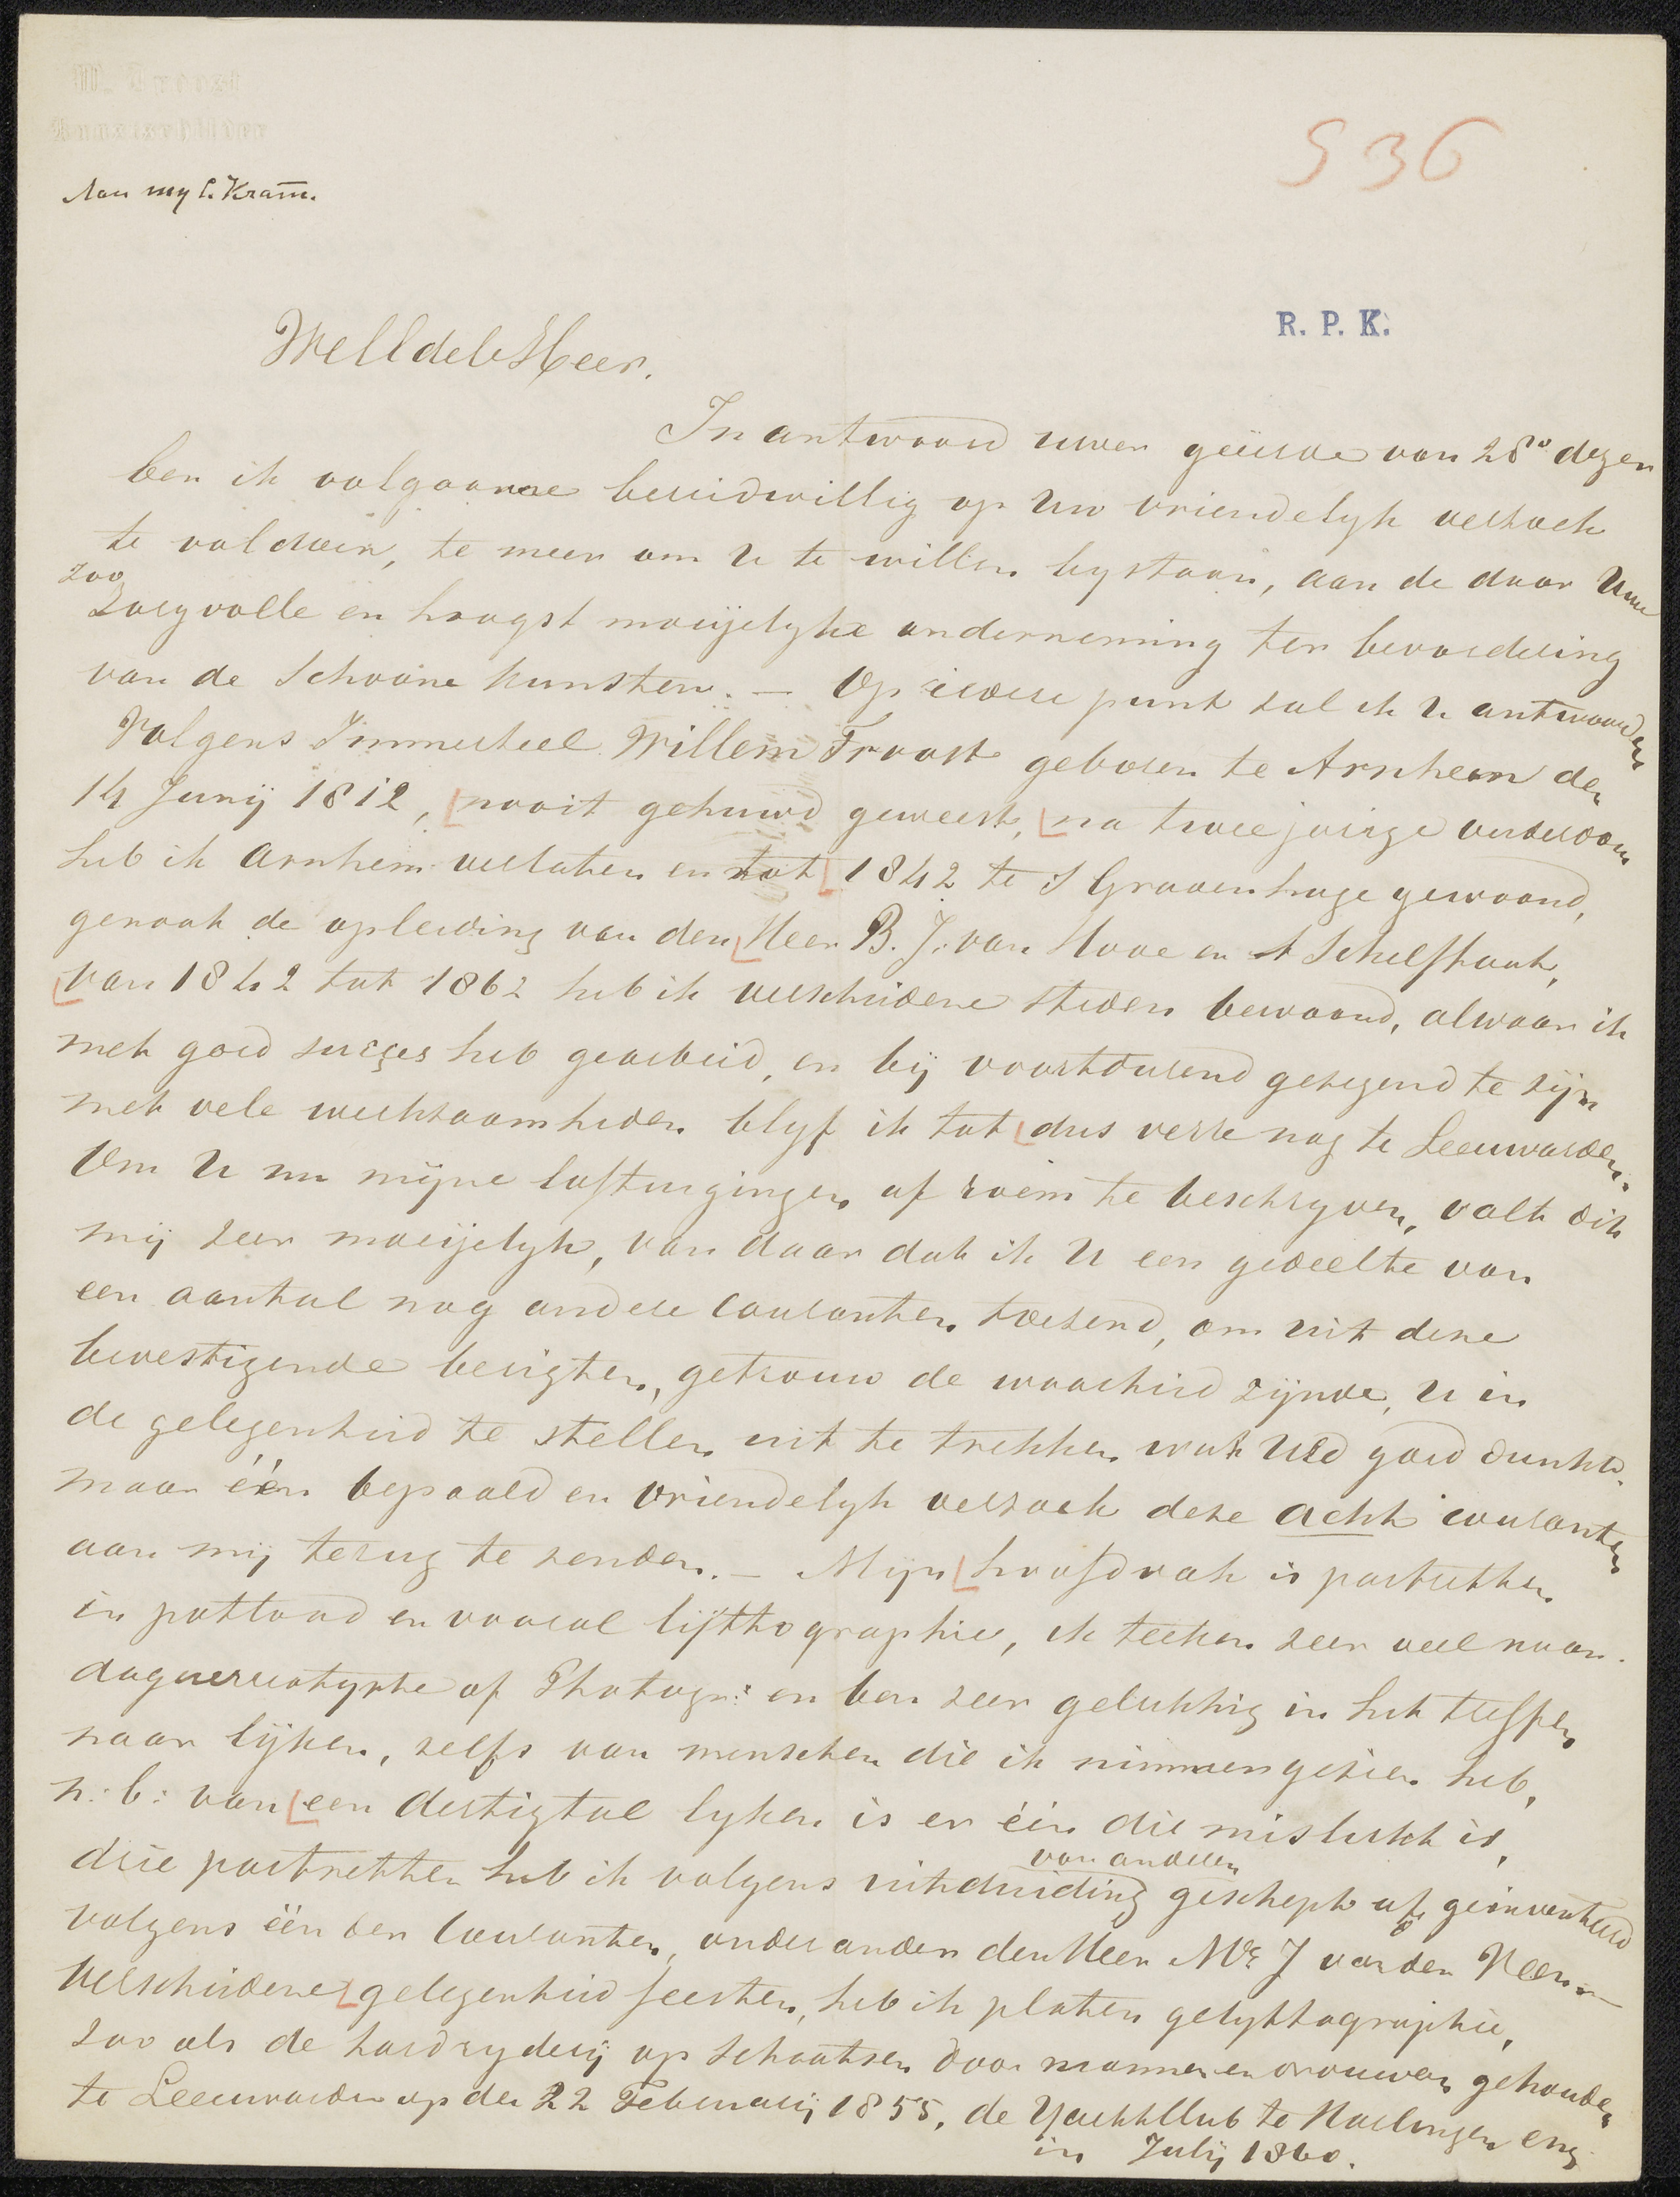 W. Troost
Kunstschilder
536
Aan my C. Kramm.
R. P. K.
WelEdele Heer.
In antwoord uwer geëerde van 28° dezer
ben ik volgaarne bereidwillig op Uw vriendelyk verzoek
te voldoen, te meer om U te willen bystaan, aan de door Uw
zoo
zorgvolle en hoogst moeijelyke onderneming ter bevordering
van de Schoone Kunsten. — Op iedere punt zal ik U antwoorden
Volgens Immerzeel Willem Troost geboren te Arnhem den
14 Junij 1812, nooit gehuwd geweest, na twee jarige ouderdom
heb ik Arnhem verlaten en tot 1842 te S Gravenhage gewoond,
genoot de opleiding van den Heer B. J. van Hove en A Schelfhout,
van 1842 tot 1862 heb ik verscheidene steden bewoond, alwaar ik
met goed succes heb gearbeid, en bij voortdurend gezegend te zijn
met vele werkzaamheden blyf ik tot dus verre nog te Leeuwarden.
Om U nu mijne loftuigingen of roem te beschryven, valt dit
mij zeer moeijelyk, van daar dat ik U een gedeelte van
een aantal nog andere Couranten toezend, om uit deze
bevestigende berigten, getrouw de waarheid zijnde, U in
de gelegenheid te stellen uit te trekken wat UEd goed dunkt.
maar één bepaald en vriendelyk verzoek deze acht couranten
aan mij terug te zenden. — Mijn hoofdvak is portretten
in potlood en vooral lijtthographie, ik teeken zeer veel naar
daguerreotyphe of Photogr: en ben zeer gelukkig in het treffen
naar lijken, zelfs van menschen die ik nimmer gezien heb,
n: b: van een dertigtal lyken is er één die mislukt is,
van anderen
drie portretten heb ik volgens uitduiding geschept of geinventeerd
volgens één der Couranten, onder anderen den Heer Mr J van der Veen.—
Verscheidene gelegenheid feesten, heb ik platen gelyttographie,
zoo als de hardrydery op schaatsen door mannen en vrouwen gehouden
te Leeuwarden op den 22 Februarij 1855, de Yachtklub te Harlingen enz
in Julij 1860.